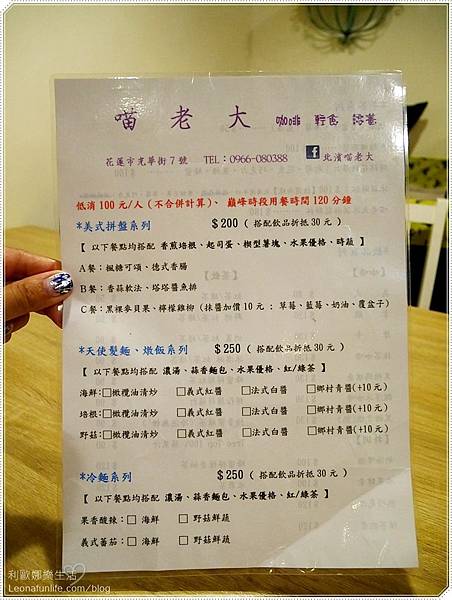 喵老大 咖啡 輕食
花蓮市光華街7號 TEL：0966-080388 f 北濱喵老大
低消100元/人(不合併計算)、 巔峰時段用餐時間120分鐘
*美式拼盤系列 $200 ( 搭配飲品折抵30元 )
【 以下餐點均搭配 香煎培根、起司蛋、楔型薯塊、水果優格、時蔬 】
A餐：楓糖可頌、德式香腸
B餐：香蒜軟法、塔塔醬魚排
C餐：黑裸麥貝果、檸檬雞柳 (抹醬加價10元 ; 草莓、藍莓、奶油、覆盆子)
*天使髮麵、燉飯系列 $250 ( 搭配飲品折抵30元 )
【 以下餐點均搭配 濃湯、蒜香麵包、水果優格、紅/綠茶 】
海鮮:□橄欖油清炒 □義式紅醬 □法式白醬 □鄉村青醬(+10元)
培根:□橄欖油清炒 □義式紅醬 □法式白醬 □鄉村青醬(+10元)
野菇:□橄欖油清炒 □義式紅醬 □法式白醬 □鄉村青醬(+10元)
*冷麵系列 $250 ( 搭配飲品折抵30元 )
【 以下餐點均搭配 濃湯、蒜香麵包、水果優格、紅/綠茶 】
果香酸辣：□ 海鮮 □ 野菇鮮蔬
義式蕃茄：□ 海鮮 □ 野菇鮮蔬
利歐娜樂生活
Leonafunlife.com/blog